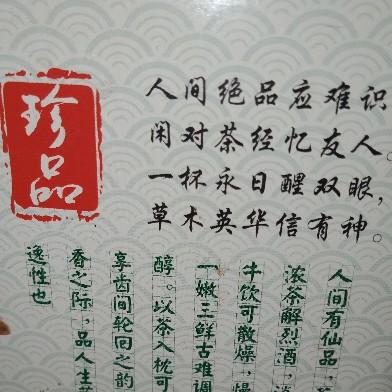 珍品
人间绝品应难识
闲对茶经忆友人。
一杯永日醒双眼,
草木英华信有神。
人间有仙品,
浓茶解烈酒,淡
牛饮可散燥,慢
一嫩三鲜古难调
醇。以茶入枕可
享齿间轮回之韵
香之际,品人生
逸性也